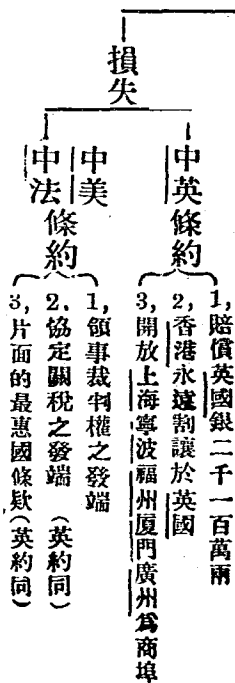 損失
中英條約
1,賠償英國銀二千一百萬兩
2,香港永遠割讓於英國
3,開放上海寧波福州厦門廣州爲商埠
中美
中法
條約
1,領事裁判權之發端
2.協定關稅之發端(英約同)
3,片面的最惠國條欵(英約同)